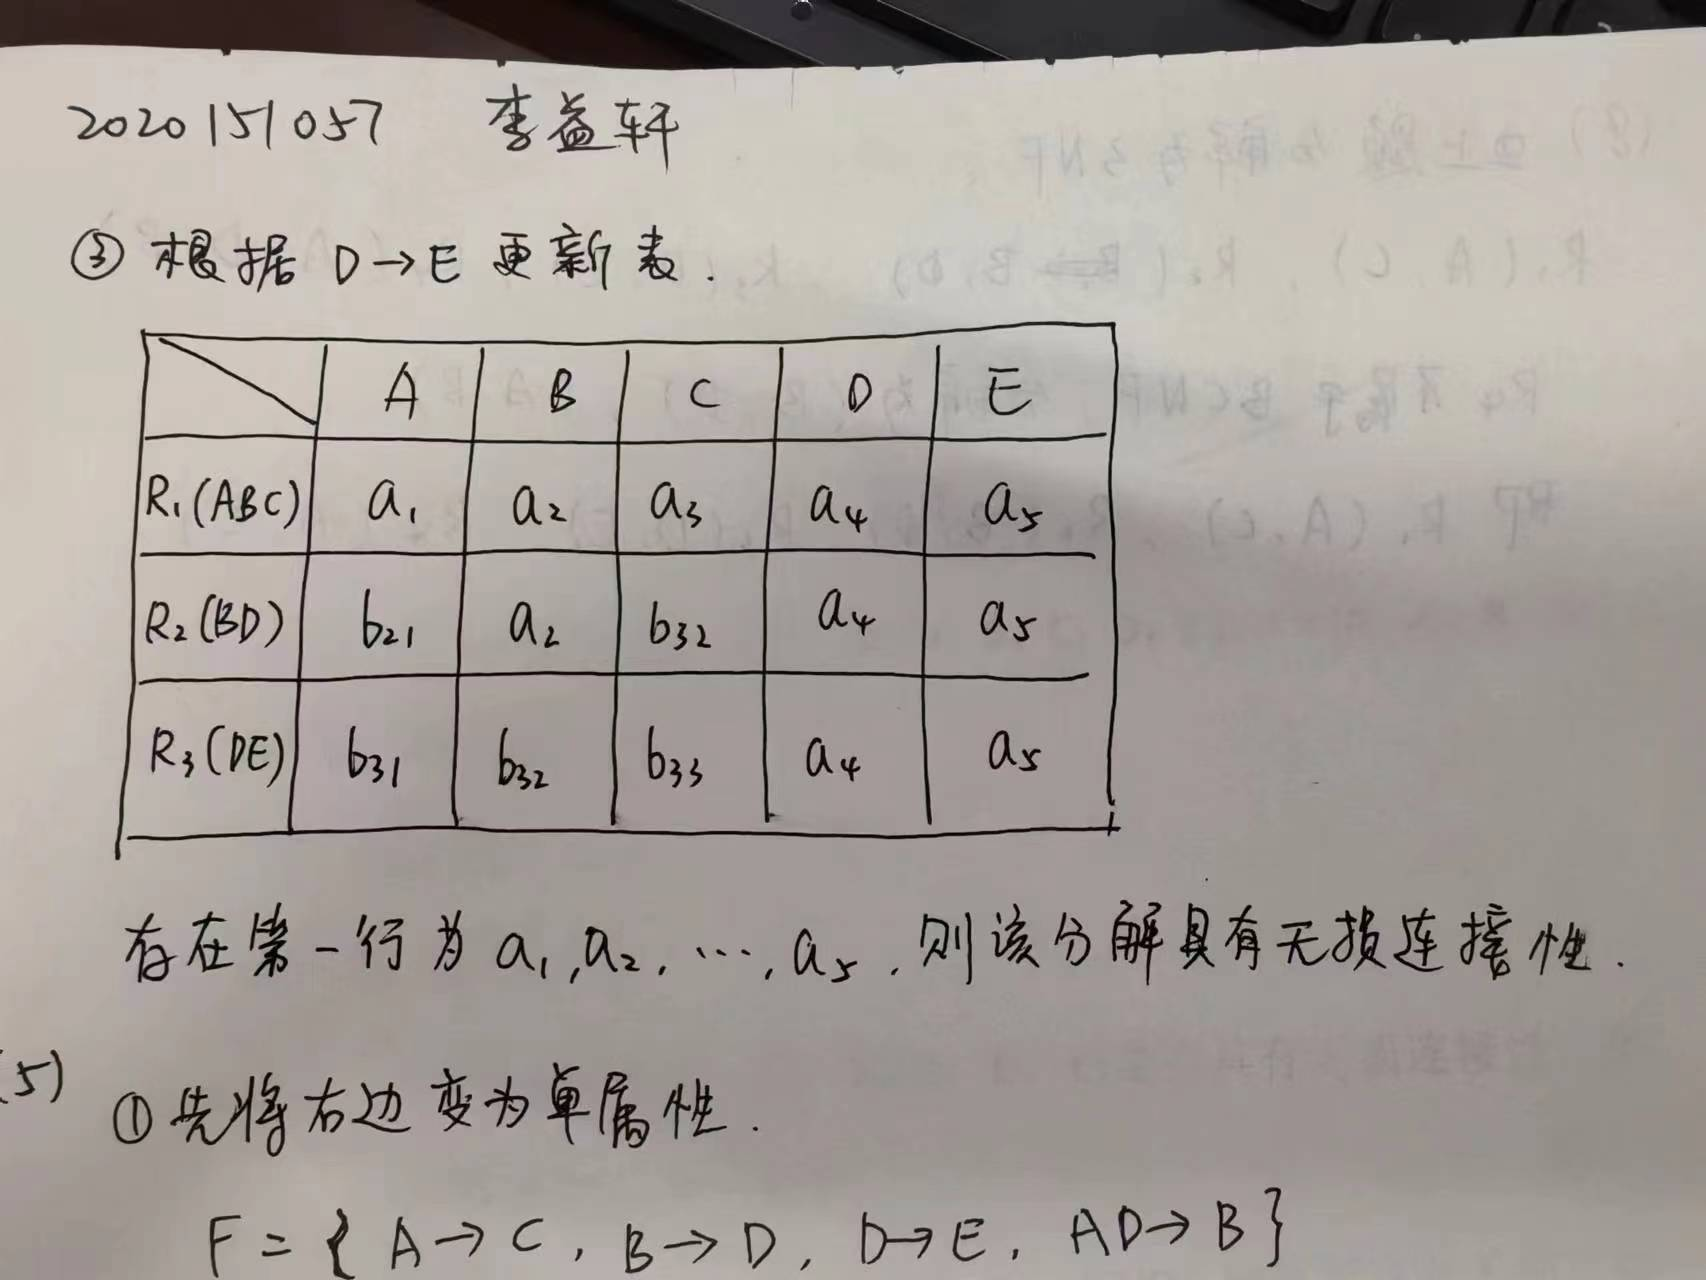 2020151057 李益轩
③ 根据 D→E 更新表.
A B C D E
R₁(ABC) a₁ a₂ a₃ a₄ a₅
R₂(BD) b₂₁ a₂ b₃₂ a₄ a₅
R₃(DE) b₃₁ b₃₂ b₃₃ a₄ a₅
存在第一行为 a₁,a₂, ⋯, a₅, 则该分解具有无损连接性.
(5) ① 先将右边变为单属性.
F = { A→C, B→D, D→E, AD→B }